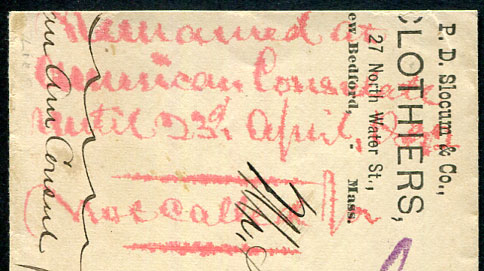 Remained at
American Consulate
until 23d April,
(Not called for
P. D. Slocum & Co.,
CLOTHIERS,
27 North Water St.,
New Bedford, - Mass.
Am Consul